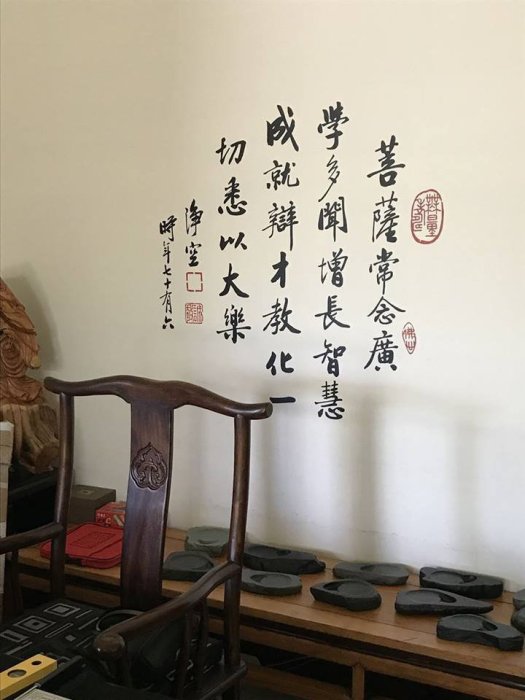 菩薩常念廣
學多聞增長智慧
成就辯才教化一
切悉以大樂
淨空
時年七十有六